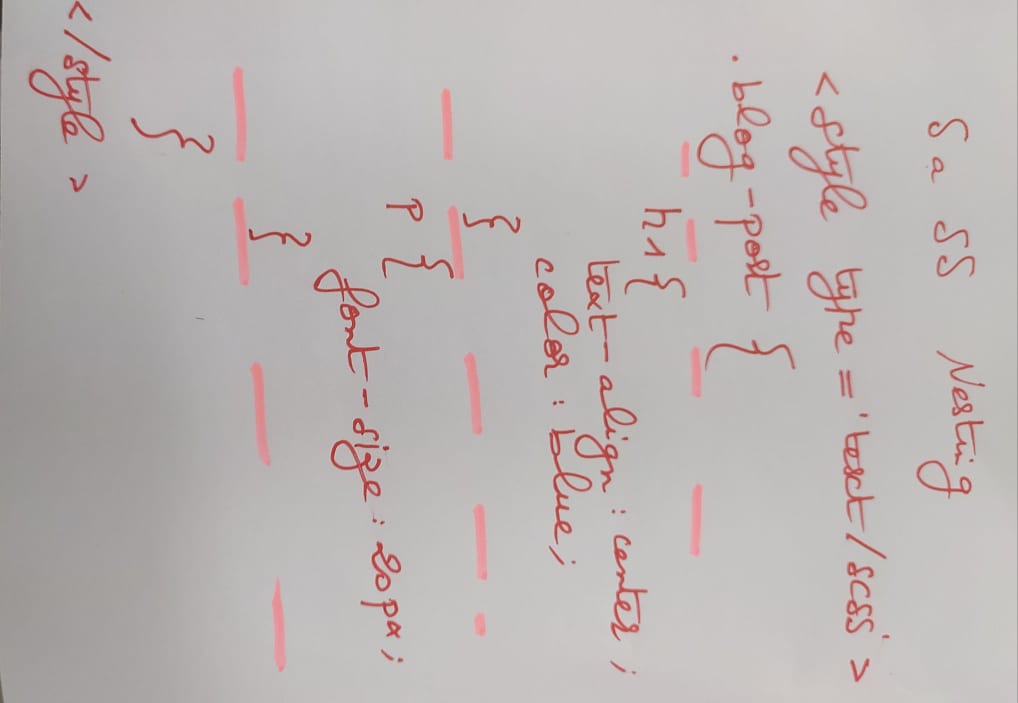 SaSS Nesting
<style type='text/scss'>
.blog-post {
h1{
text-align: center;
color: blue;
}
p {
font-size: 20px;
}
}
</style>